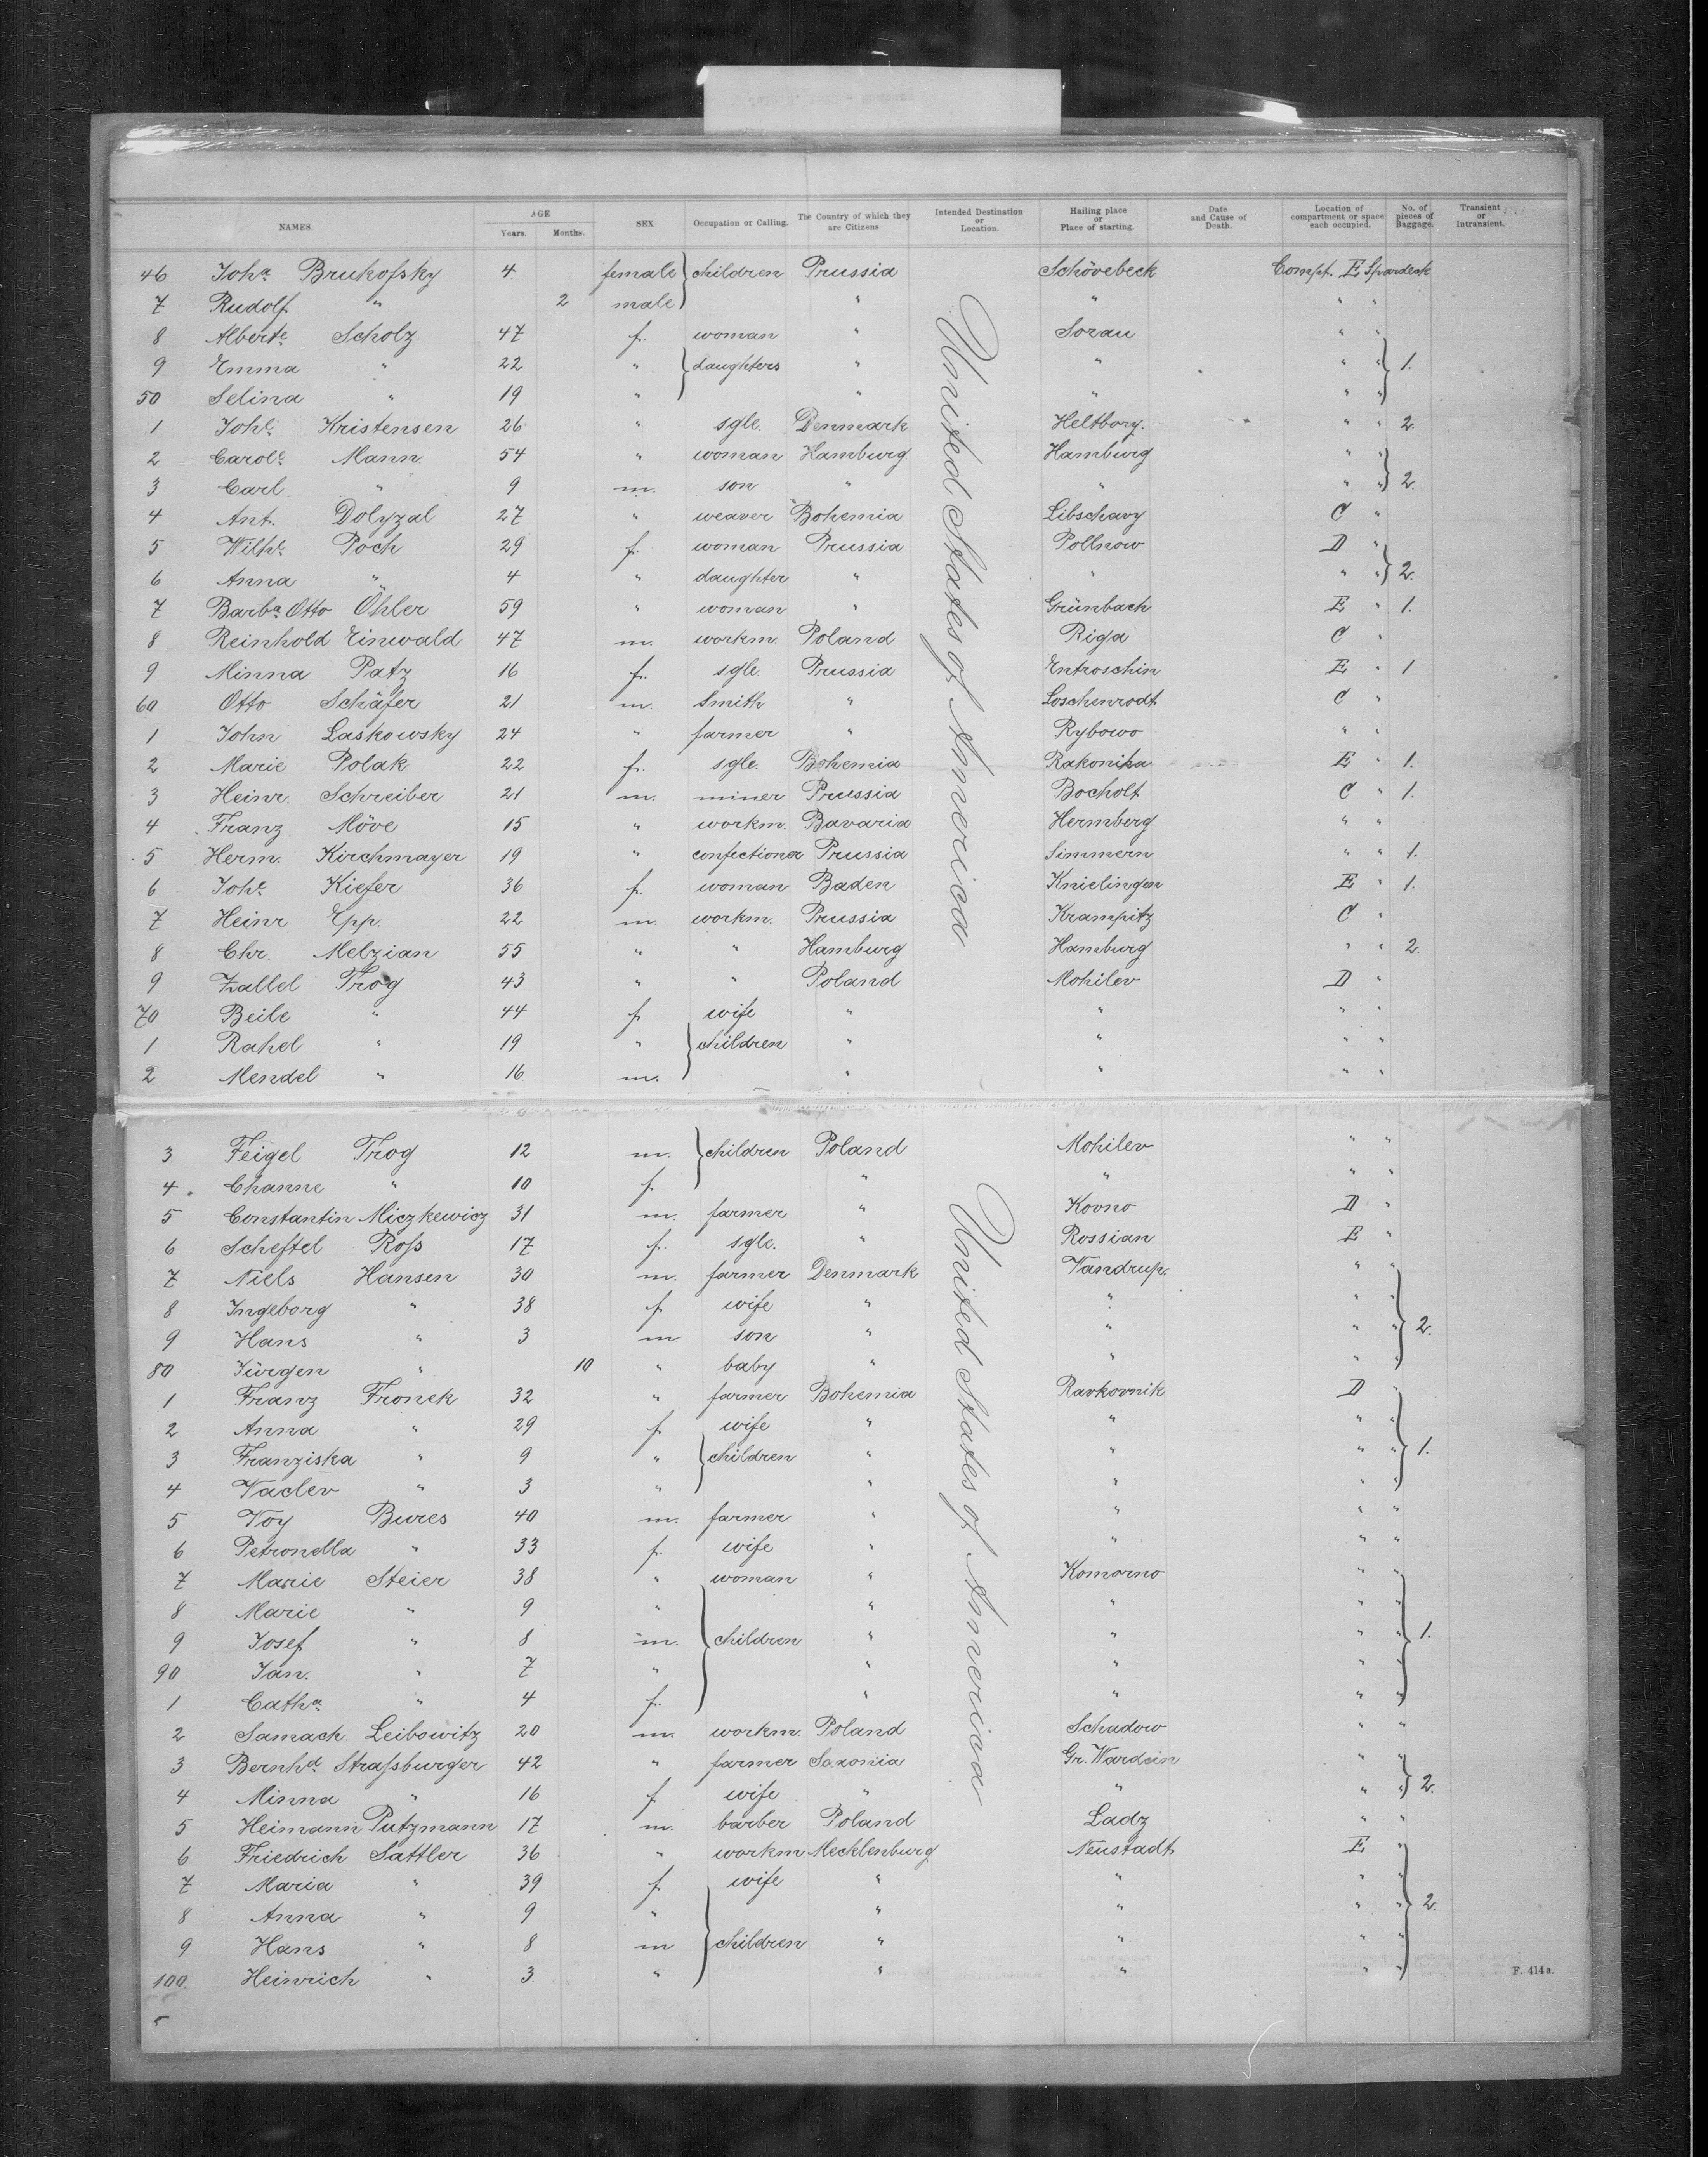 NAMES. AGE Years. Months. SEX Occupation or Calling. The Country of which they are Citizens Intended Destination or Location. Hailing place or Place of starting. Date and Cause of Death. Location of compartment or space each occupied. No. of pieces of Baggage. Transient or Intransient.
46 Joha. Brukofsky 4 female children Prussia Schövebeck Compt. E Spardeck
7 Rudolf " 2 male " " " "
8 Alberte. Scholz 47 f. woman " Sorau " "
9 Emma " 22 " daughters " " " " 1.
50 Selina " 19 " " " " "
1 Johe. Kristensen 26 " sgle. Denmark Heltborg. " " 2.
2 Carole. Mann 54 " woman Hamburg Hamburg " "
3 Carl " 9 m. son " " " " 2.
4 Ant. Dolyzal 27 " weaver Bohemia Libschavy C "
5 Wilhe. Poch 29 f. woman Prussia Pollnow D "
6 Anna " 4 " daughter " " " " 2.
7 Barba. Otto Öhler 59 " woman " Grünbach E " 1.
8 Reinhold Einwald 47 m. workm. Poland Riga C "
9 Minna Patz 16 f. sgle. Prussia Entroschin E " 1
60 Otto Schäfer 21 m. smith " Loschenrodt C "
1 John Laskowsky 24 " farmer " Rybowo " "
2 Marie Polak 22 f. sgle. Bohemia Rakonika E " 1.
3 Heinr. Schreiber 21 m. miner Prussia Bocholt C " 1.
4 Franz Möve 15 " workm. Bavaria Hermberg " "
5 Herm. Kirchmayer 19 " confectioner Prussia Simmern " " 1.
6 Johe. Kiefer 36 f. woman Baden Knielingen E " 1.
7 Heinr Epp. 22 m. workm. Prussia Krampitz C "
8 Chr. Melzian 55 " " Hamburg Hamburg " " 2.
9 Zallel Trog 43 " " Poland Mohilev D "
70 Beile " 44 f wife " " " "
1 Rahel " 19 " children " " " "
2 Mendel " 16 m. " " " "
United States of America
3 Feigel Trog 12 m. children Poland Mohilev " "
4 Channe " 10 f " " " "
5 Constantin Miczkewicz 31 m. farmer " Kovno D "
6 Scheftel Roſs 17 f. sgle. " Rossian E "
7 Niels Hansen 30 m. farmer Denmark Vandrup. " "
8 Ingeborg " 38 f. wife " " " "
9 Hans " 3 m son " " " " 2.
80 Jürgen " 10 " baby " " " "
1 Franz Fronek 32 " farmer Bohemia Ravkovnik D "
2 Anna " 29 f wife " " " "
3 Franziska " 9 " children " " " " 1.
4 Vaclev " 3 " " " " "
5 Voy Bures 40 m. farmer " " " "
6 Petronella " 33 f. wife " " " "
7 Marie Steier 38 " woman " Komorno " "
8 Marie " 9 " " " " "
9 Josef " 8 m. children " " " " 1.
90 Jan. " 7 " " " " "
1 Catha. " 4 f. " " " "
2 Samach Leibowitz 20 m. workm. Poland Schadow " "
3 Bernhd. Straſsburger 42 " farmer Saxonia Gr. Wardein " "
4 Minna " 16 f wife " " " " 2.
5 Heimann Putzmann 17 m. barber Poland Ladz " "
6 Friedrich Sattler 36 " workm Mecklenburg Neustadt E "
7 Maria " 39 f wife " " " "
8 Anna " 9 " " " " " 2.
9 Hans " 8 m children " " " "
100. Heinrich " 3 " " " " "
United States of America
F. 414 a.